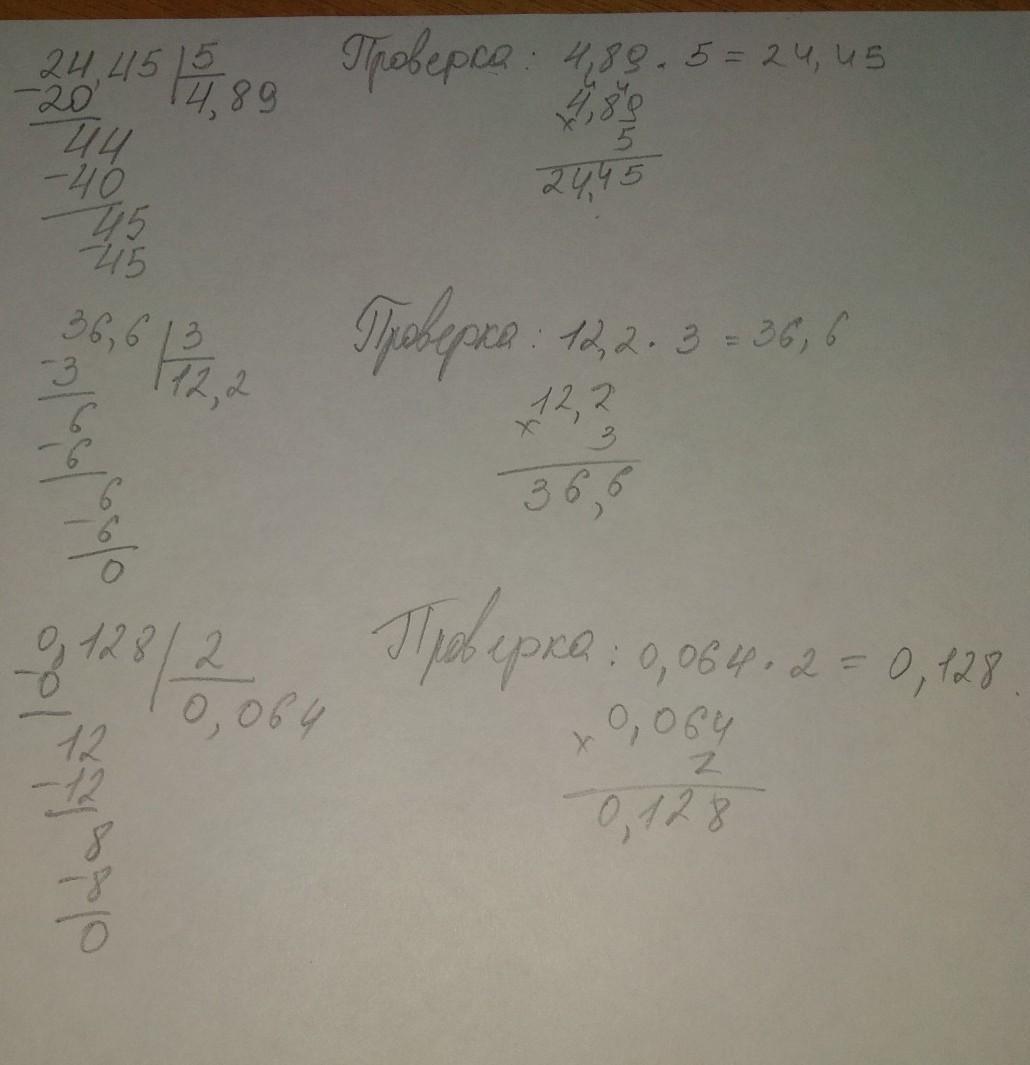 24,45 | 5 Проверка: 4,89 · 5 = 24,45
-20 4,89
4 4
4,89
44
× 5
-40
24,45
45
-45
36,6 | 3 Проверка: 12,2 · 3 = 36,6
-3 12,2
12,2
6
× 3
-6
36,6
6
-6
0
0,128 | 2 Проверка: 0,064 · 2 = 0,128.
-0 0,064
0,064
12
× 2
-12
0,128
8
-8
0